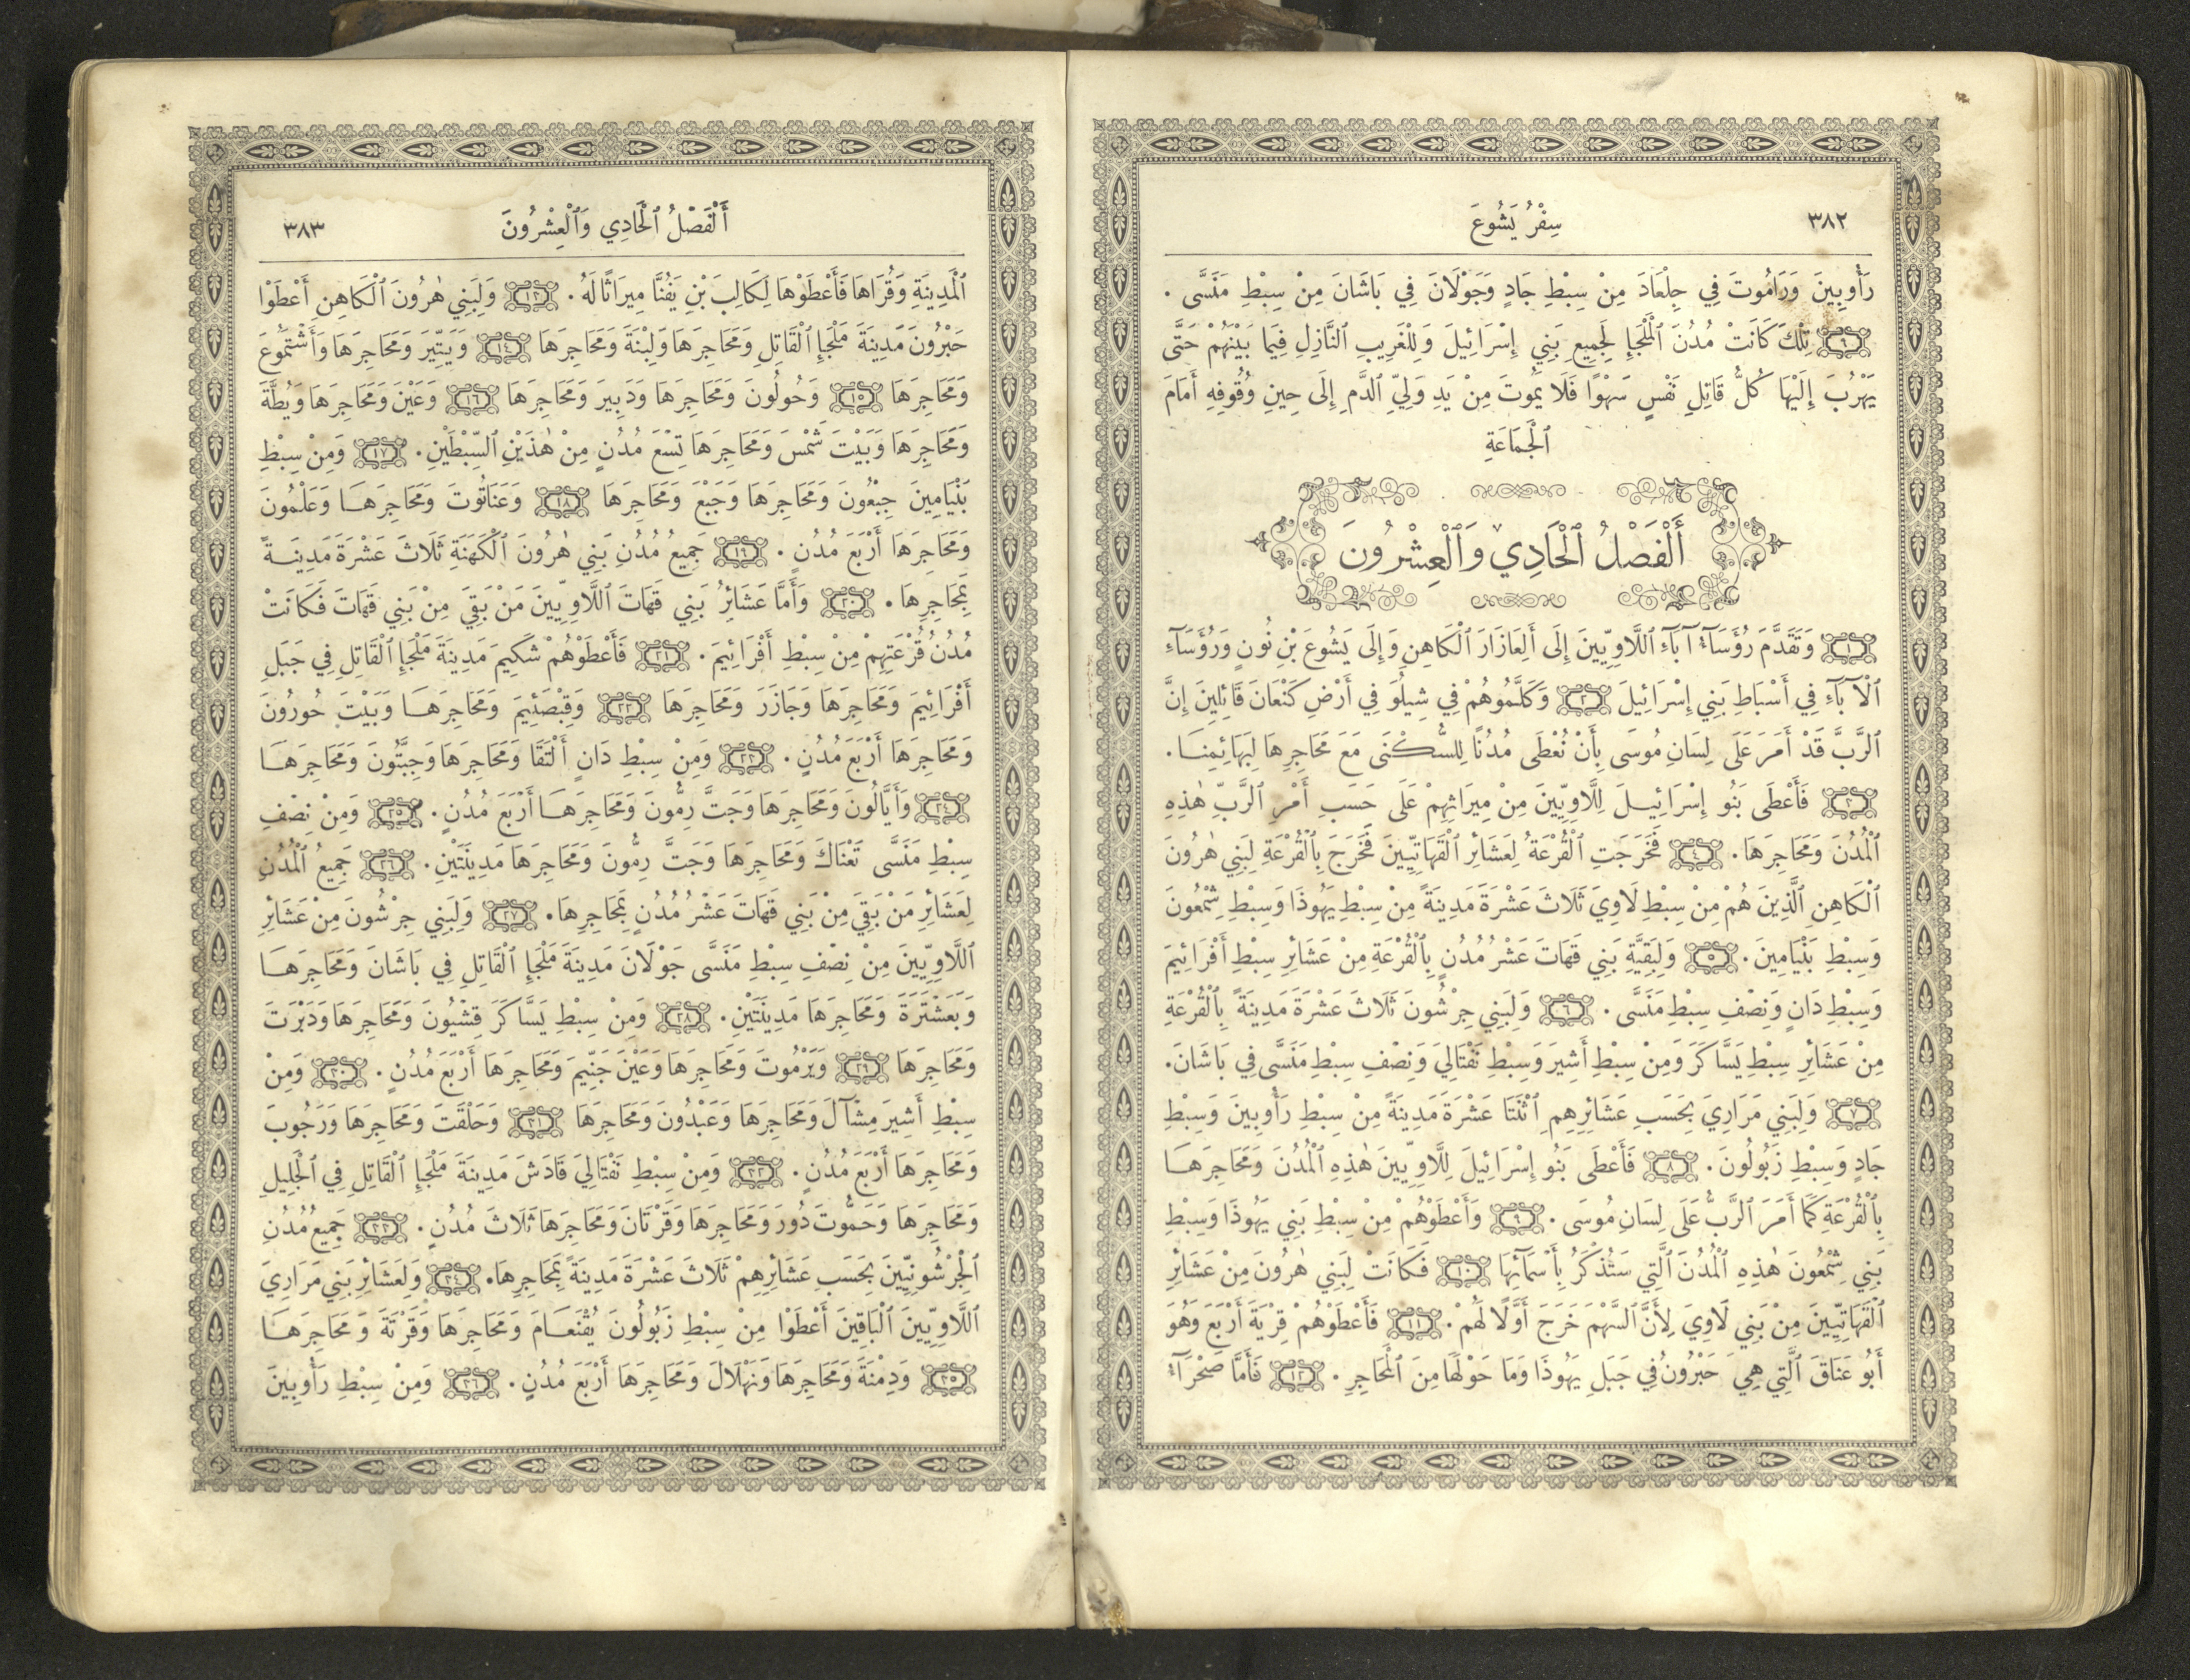 ٣٨٢
سِفْرُ يَشُوعَ
رَأُوبِينَ وَرَامُوتَ فِي جِلْعَادَ مِنْ سِبْطِ جَادٍ وَجَوْلَانَ فِي بَاشَانَ مِنْ سِبْطِ مَنَسَّى .
٩ تِلْكَ كَانَتْ مُدُنَ ٱلْمَلْجَإِ لِجَمِيعِ بَنِي إِسْرَائِيلَ وَلِلْغَرِيبِ ٱلنَّازِلِ فِيمَا بَيْنَهُمْ حَتَّى
يَهْرُبَ إِلَيْهَا كُلُّ قَاتِلِ نَفْسٍ سَهْوًا فَلَا يَمُوتَ مِنْ يَدِ وَلِيِّ ٱلدَّمِ إِلَى حِينِ وُقُوفِهِ أَمَامَ
ٱلْجَمَاعَةِ
أَلْفَصْلُ ٱلْحَادِي وَٱلْعِشْرُونَ
١ وَتَقَدَّمَ رُؤَسَآءُ آبَآءِ ٱللَّاوِيِّينَ إِلَى أَلِعَازَارَ ٱلْكَاهِنِ وَإِلَى يَشُوعَ بْنِ نُونٍ وَرُؤَسَآءِ
ٱلْآبَآءِ فِي أَسْبَاطِ بَنِي إِسْرَائِيلَ ٢ وَكَلَّمُوهُمْ فِي شِيلُوَ فِي أَرْضِ كَنْعَانَ قَائِلِينَ إِنَّ
ٱلرَّبَّ قَدْ أَمَرَ عَلَى لِسَانِ مُوسَى بِأَنْ نُعْطَى مُدُنًا لِلسُّكْنَى مَعَ مَحَاجِرِهَا لِبَهَائِمِنَا .
٣ فَأَعْطَى بَنُو إِسْرَائِيلَ لِلَّاوِيِّينَ مِنْ مِيرَاثِهِمْ عَلَى حَسَبِ أَمْرِ ٱلرَّبِّ هٰذِهِ
ٱلْمُدُنَ وَمَحَاجِرَهَا . ٤ فَخَرَجَتِ ٱلْقُرْعَةُ لِعَشَائِرِ ٱلْقَهَاتِيِّينَ فَخَرَجَ بِٱلْقُرْعَةِ لِبَنِي هٰرُونَ
ٱلْكَاهِنِ ٱلَّذِينَ هُمْ مِنْ سِبْطِ لَاوِيَ ثَلَاثَ عَشْرَةَ مَدِينَةً مِنْ سِبْطِ يَهُوذَا وَسِبْطِ شِمْعُونَ
وَسِبْطِ بَنْيَامِينَ . ٥ وَلِبَقِيَّةِ بَنِي قَهَاتَ عَشْرُ مُدُنٍ بِٱلْقُرْعَةِ مِنْ عَشَائِرِ سِبْطِ أَفْرَائِيمَ
وَسِبْطِ دَانٍ وَنِصْفِ سِبْطِ مَنَسَّى . ٦ وَلِبَنِي جِرْشُونَ ثَلَاثَ عَشْرَةَ مَدِينَةً بِٱلْقُرْعَةِ
مِنْ عَشَائِرِ سِبْطِ يَسَّاكَرَ وَمِنْ سِبْطِ أَشِيرَ وَسِبْطِ نَفْتَالِيَ وَنِصْفِ سِبْطِ مَنَسَّى فِي بَاشَانَ .
٧ وَلِبَنِي مَرَارِيَ بِحَسَبِ عَشَائِرِهِمِ ٱثْنَتَا عَشْرَةَ مَدِينَةً مِنْ سِبْطِ رَأُوبِينَ وَسِبْطِ
جَادٍ وَسِبْطِ زَبُولُونَ . ٨ فَأَعْطَى بَنُو إِسْرَائِيلَ لِلَّاوِيِّينَ هٰذِهِ ٱلْمُدُنَ وَمَحَاجِرَهَا
بِٱلْقُرْعَةِ كَمَا أَمَرَ ٱلرَّبُّ عَلَى لِسَانِ مُوسَى . ٩ وَأَعْطَوْهُمْ مِنْ سِبْطِ بَنِي يَهُوذَا وَسِبْطِ
بَنِي شِمْعُونَ هٰذِهِ ٱلْمُدُنَ ٱلَّتِي سَتُذْكَرُ بِأَسْمَآئِهَا ١٠ فَكَانَتْ لِبَنِي هٰرُونَ مِنْ عَشَائِرِ
ٱلْقَهَاتِيِّينَ مِنْ بَنِي لَاوِيَ لِأَنَّ ٱلسَّهْمَ خَرَجَ أَوَّلًا لَهُمْ . ١١ فَأَعْطَوْهُمْ قِرْيَةَ أَرْبَعَ وَهُوَ
أَبُو عَنَاقَ ٱلَّتِي هِيَ حَبْرُونُ فِي جَبَلِ يَهُوذَا وَمَا حَوْلَهَا مِنَ ٱلْمَحَاجِرِ . ١٢ فَأَمَّا صَحْرَآءُ
أَلْفَصْلُ ٱلْحَادِي وَٱلْعِشْرُونَ
٣٨٣
ٱلْمَدِينَةِ وَقُرَاهَا فَأَعْطَوْهَا لِكَالِبَ بْنِ يَفُنَّا مِيرَاثًا لَهُ . ١٣ وَلِبَنِي هٰرُونَ ٱلْكَاهِنِ أَعْطَوْا
حَبْرُونَ مَدِينَةَ مَلْجَإِ ٱلْقَاتِلِ وَمَحَاجِرَهَا وَلِبْنَةَ وَمَحَاجِرَهَا ١٤ وَيَتِّيرَ وَمَحَاجِرَهَا وَأَشْتَمُوعَ
وَمَحَاجِرَهَا ١٥ وَحُولُونَ وَمَحَاجِرَهَا وَدَبِيرَ وَمَحَاجِرَهَا ١٦ وَعَيْنَ وَمَحَاجِرَهَا وَيُطَّةَ
وَمَحَاجِرَهَا وَبَيْتَ شَمْسَ وَمَحَاجِرَهَا تِسْعَ مُدُنٍ مِنْ هٰذَيْنِ ٱلسِّبْطَيْنِ . ١٧ وَمِنْ سِبْطِ
بَنْيَامِينَ جِبْعُونَ وَمَحَاجِرَهَا وَجَبْعَ وَمَحَاجِرَهَا ١٨ وَعَنَاثُوتَ وَمَحَاجِرَهَا وَعَلْمُونَ
وَمَحَاجِرَهَا أَرْبَعَ مُدُنٍ . ١٩ جَمِيعُ مُدُنِ بَنِي هٰرُونَ ٱلْكَهَنَةِ ثَلَاثَ عَشْرَةَ مَدِينَةً
بِمَحَاجِرِهَا . ٢٠ وَأَمَّا عَشَائِرُ بَنِي قَهَاتَ ٱللَّاوِيِّينَ مَنْ بَقِيَ مِنْ بَنِي قَهَاتَ فَكَانَتْ
مُدُنُ قُرْعَتِهِمْ مِنْ سِبْطِ أَفْرَائِيمَ . ٢١ فَأَعْطَوْهُمْ شَكِيمَ مَدِينَةَ مَلْجَإِ ٱلْقَاتِلِ فِي جَبَلِ
أَفْرَائِيمَ وَمَحَاجِرَهَا وَجَازَرَ وَمَحَاجِرَهَا ٢٢ وَقِبْصَئِيمَ وَمَحَاجِرَهَا وَبَيْتَ حُورُونَ
وَمَحَاجِرَهَا أَرْبَعَ مُدُنٍ . ٢٣ وَمِنْ سِبْطِ دَانٍ أَلْتَقَا وَمَحَاجِرَهَا وَجِبَّتُونَ وَمَحَاجِرَهَا
٢٤ وَأَيَّالُونَ وَمَحَاجِرَهَا وَجَتَّ رِمُّونَ وَمَحَاجِرَهَا أَرْبَعَ مُدُنٍ . ٢٥ وَمِنْ نِصْفِ
سِبْطِ مَنَسَّى تَعْنَاكَ وَمَحَاجِرَهَا وَجَتَّ رِمُّونَ وَمَحَاجِرَهَا مَدِينَتَيْنِ . ٢٦ جَمِيعُ ٱلْمُدُنِ
لِعَشَائِرِ مَنْ بَقِيَ مِنْ بَنِي قَهَاتَ عَشْرُ مُدُنٍ بِمَحَاجِرِهَا . ٢٧ وَلِبَنِي جِرْشُونَ مِنْ عَشَائِرِ
ٱللَّاوِيِّينَ مِنْ نِصْفِ سِبْطِ مَنَسَّى جَوْلَانَ مَدِينَةَ مَلْجَإِ ٱلْقَاتِلِ فِي بَاشَانَ وَمَحَاجِرَهَا
وَبَعَشْتَرَةَ وَمَحَاجِرَهَا مَدِينَتَيْنِ . ٢٨ وَمِنْ سِبْطِ يَسَّاكَرَ قِشْيُونَ وَمَحَاجِرَهَا وَدَبْرَتَ
وَمَحَاجِرَهَا ٢٩ وَيَرْمُوتَ وَمَحَاجِرَهَا وَعَيْنَ جَنِّيمَ وَمَحَاجِرَهَا أَرْبَعَ مُدُنٍ . ٣٠ وَمِنْ
سِبْطِ أَشِيرَ مِشْآلَ وَمَحَاجِرَهَا وَعَبْدُونَ وَمَحَاجِرَهَا ٣١ وَحَلْقَتَ وَمَحَاجِرَهَا وَرَحُوبَ
وَمَحَاجِرَهَا أَرْبَعَ مُدُنٍ . ٣٢ وَمِنْ سِبْطِ نَفْتَالِيَ قَادَشَ مَدِينَةَ مَلْجَإِ ٱلْقَاتِلِ فِي ٱلْجَلِيلِ
وَمَحَاجِرَهَا وَحَمُّوتَ دُورَ وَمَحَاجِرَهَا وَقَرْتَانَ وَمَحَاجِرَهَا ثَلَاثَ مُدُنٍ . ٣٣ جَمِيعُ مُدُنِ
ٱلْجِرْشُونِيِّينَ بِحَسَبِ عَشَائِرِهِمْ ثَلَاثَ عَشْرَةَ مَدِينَةً بِمَحَاجِرِهَا . ٣٤ وَلِعَشَائِرِ بَنِي مَرَارِيَ
ٱللَّاوِيِّينَ ٱلْبَاقِينَ أَعْطَوْا مِنْ سِبْطِ زَبُولُونَ يُقْنَعَامَ وَمَحَاجِرَهَا وَقَرْتَةَ وَمَحَاجِرَهَا
٣٥ وَدِمْنَةَ وَمَحَاجِرَهَا وَنَهْلَالَ وَمَحَاجِرَهَا أَرْبَعَ مُدُنٍ . ٣٦ وَمِنْ سِبْطِ رَأُوبِينَ